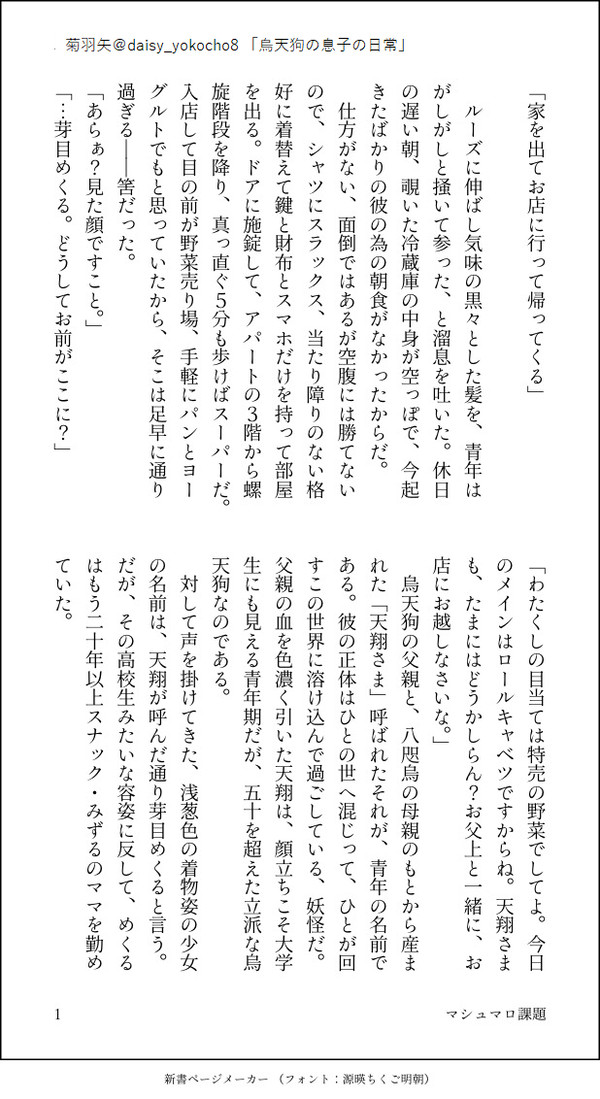 菊羽矢@daisy_yokocho8「烏天狗の息子の日常」
「家を出てお店に行って帰ってくる」
　ルーズに伸ばし気味の黒々とした髪を、青年は
がしがしと掻いて参った、と溜息を吐いた。休日
の遅い朝、覗いた冷蔵庫の中身が空っぽで、今起
きたばかりの彼の為の朝食がなかったからだ。
　仕方がない、面倒ではあるが空腹には勝てない
ので、シャツにスラックス、当たり障りのない格
好に着替えて鍵と財布とスマホだけを持って部屋
を出る。ドアに施錠して、アパートの３階から螺
旋階段を降り、真っ直ぐ５分も歩けばスーパーだ。
入店して目の前が野菜売り場、手軽にパンとヨー
グルトでもと思っていたから、そこは足早に通り
過ぎる――筈だった。
「あらぁ？見た顔ですこと。」
「…芽目めくる。どうしてお前がここに？」
「わたくしの目当ては特売の野菜でしてよ。今日
のメインはロールキャベツですからね。天翔さま
も、たまにはどうかしらん？お父上と一緒に、お
店にお越しなさいな。」
　烏天狗の父親と、八咫烏の母親のもとから産ま
れた「天翔さま」呼ばれたそれが、青年の名前で
ある。彼の正体はひとの世へ混じって、ひとが回
すこの世界に溶け込んで過ごしている、妖怪だ。
父親の血を色濃く引いた天翔は、顔立ちこそ大学
生にも見える青年期だが、五十を超えた立派な烏
天狗なのである。
　対して声を掛けてきた、浅葱色の着物姿の少女
の名前は、天翔が呼んだ通り芽目めくると言う。
だが、その高校生みたいな容姿に反して、めくる
はもう二十年以上スナック・みずるのママを勤め
ていた。
マシュマロ課題
1
新書ページメーカー（フォント：源暎ちくご明朝）